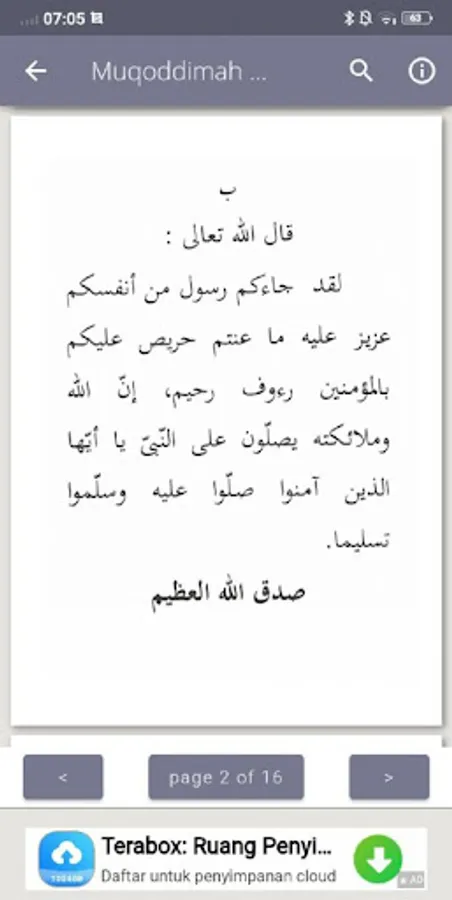 07:05
63
Muqoddimah ...
ب
قال الله تعالى :
لقد جاءكم رسول من أنفسكم
عزيز عليه ما عنتم حريص عليكم
بالمؤمنين رءوف رحيم، إنّ الله
وملائكته يصلّون على النّبىّ يا أيّها
الذين آمنوا صلّوا عليه وسلّموا
تسليما.
صدق الله العظيم
< page 2 of 16 >
Terabox: Ruang Penyi...
Daftar untuk penyimpanan cloud
AD